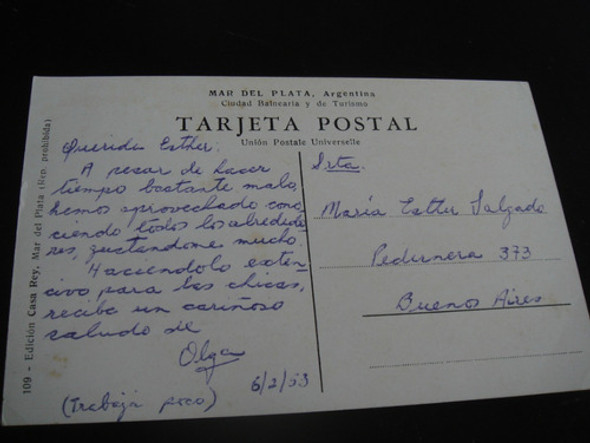 MAR DEL PLATA, Argentina
Ciudad Balnearia y de Turismo
TARJETA POSTAL
Unión Postale Universelle
109 - Edición Casa Rey, Mar del Plata (Rep. prohibida)
Querida Esther:
A pesar de hacer
tiempo bastante malo,
hemos aprovechado cono
ciendo todos los alrededo
res, gustándome mucho.
Haciéndolo exten-
sivo para las chicas,
recibe un cariñoso
saludo de
Olga
6/2/53
(Trabajá poco)
Srta.
María Esther Salgado
Pedernera 373
Buenos Aires